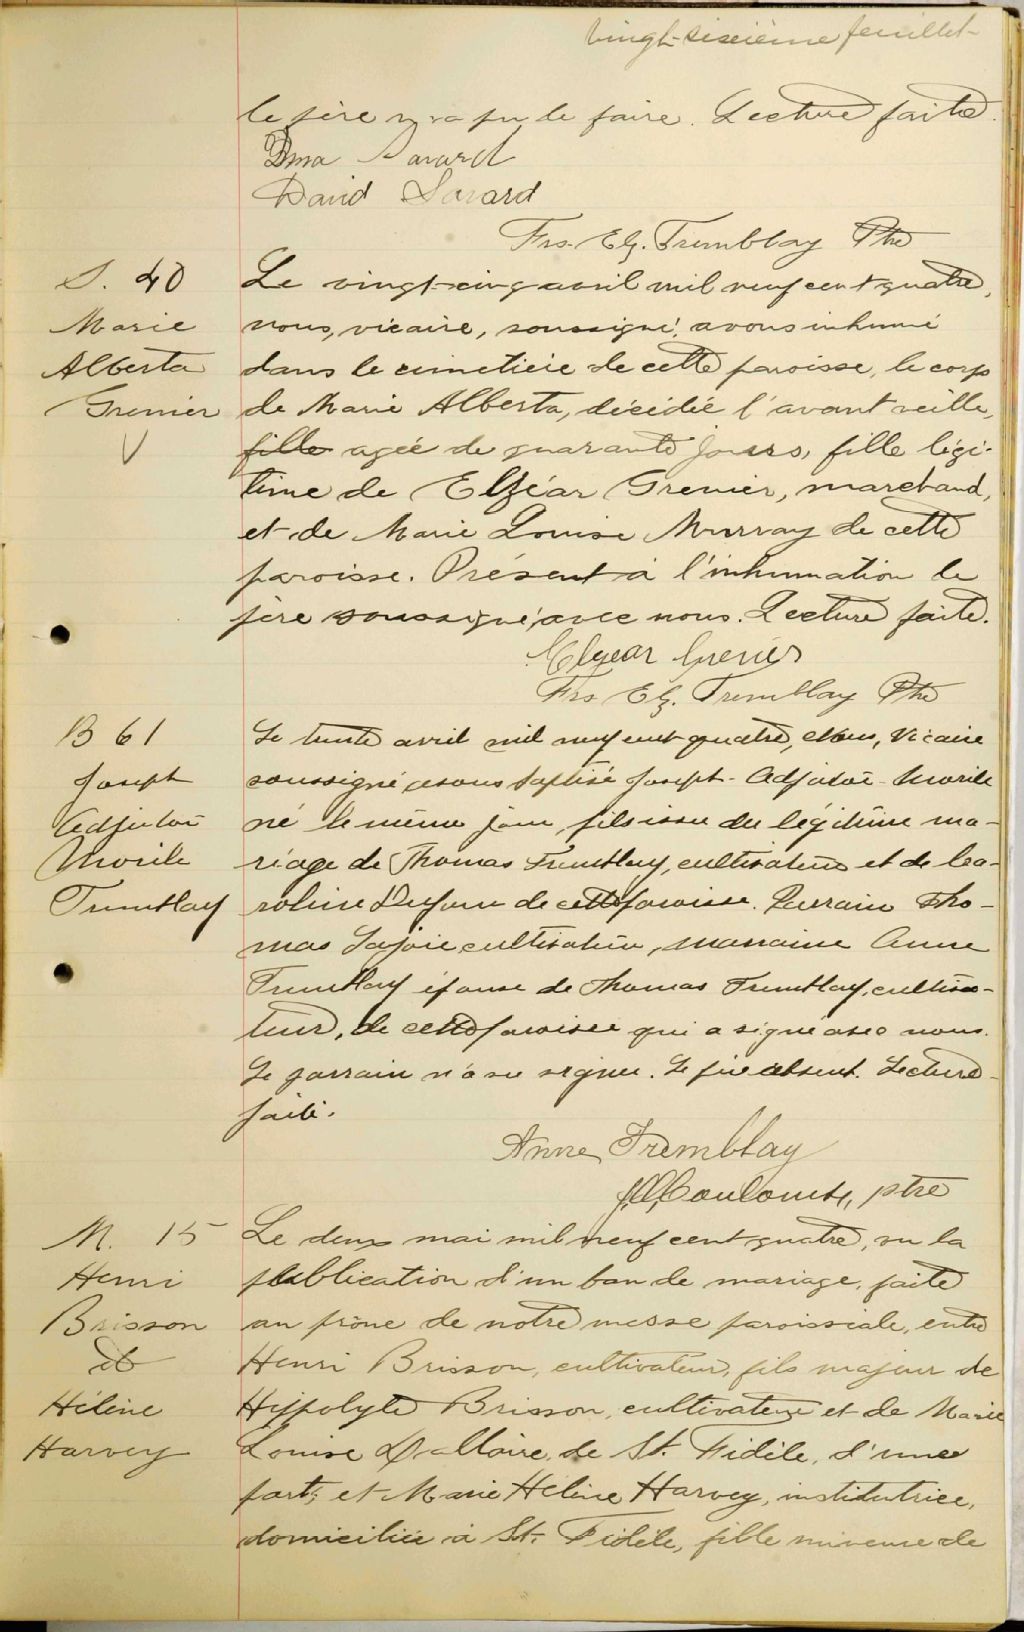 vingt-sixième feuillet
le père n'a pu le faire. Lecture faite.
Dma Savard
David Savard
Frs. Elz. Tremblay Ptre
S. 40
Marie
Alberta
Grenier
Le vingt-cinq avril mil neuf cent quatre,
nous, vicaire, soussigné, avons inhumé
dans le cimetière de cette paroisse, le corps
de Marie Alberta, décédée l'avant veille,
fille agée de quarante jours, fille légi-
time de Elzéar Grenier, marchand,
et de Marie Louise Murray de cette
paroisse. Présent à l'inhumation le
père soussigné avec nous. Lecture faite.
Elzear Grenier
Frs Elz. Tremblay Ptre
B 61
Joseph
Adjutor
Morile
Tremblay
Le trente avril mil neuf cent quatre, Nous, Vicaire
soussigné avons baptisé Joseph-Adjutor-Morile
né le même jour, fils issu du légitime ma-
riage de Thomas Tremblay, cultivateur et de Ca-
roline de cette paroisse. Parrain Tho-
mas Lajoie cultivateur, marraine Anne
Tremblay épouse de Thomas Tremblay, cultiva-
teur, de cette paroisse qui a signé avec nous.
Le parrain n'a su signer. Le père absent. Lecture
faite.
Anne Tremblay
Coulombe, ptre
M. 15
Henri
Brisson
et
Hélène
Harvey
Le deux mai mil neuf cent quatre, vu la
publication d'un ban de mariage, faite
au prône de notre messe paroissiale, entre
Henri Brisson, cultivateur, fils majeur de
Hippolyte Brisson, cultivateur et de Marie
Louise Dallaire, de St. Fidèle, d'une
part; et Marie Hélène Harvey, institutrice,
domiciliée à St. Fidèle, fille mineure de